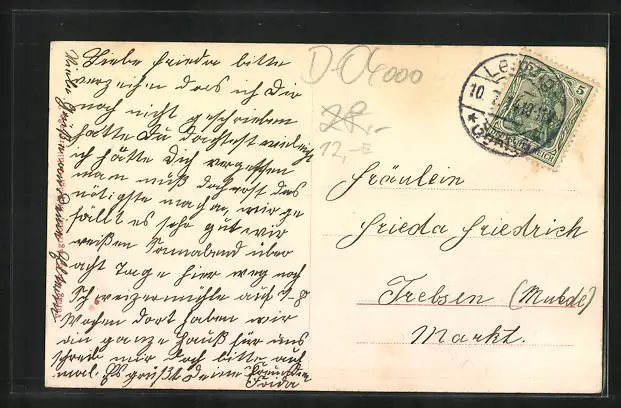 Liebe Frieda bitte
verzeihen dass ich Dir
noch nicht geschrieben
hätte Du dachtest vieleicht
ich hätte Dich vergessen
man muß doch erst das
nötigste machen, wir ge
fällt es sehr gut wir
reißen Sonnabend über
acht Tage hier weg nach
Schweizermühle auf 7-8
Wochen dort haben wir
ein ganze Hauß für uns
schreib mir doch bitte auch
mal. Es grüßt Deine Freundin
Frida
D-04000
28,-
12,-E
Leipzig
10. 7.
5
DEUTSCHES REICH
Fräulein
Frieda Friedrich
Trebsen (Mulde)
Markt.